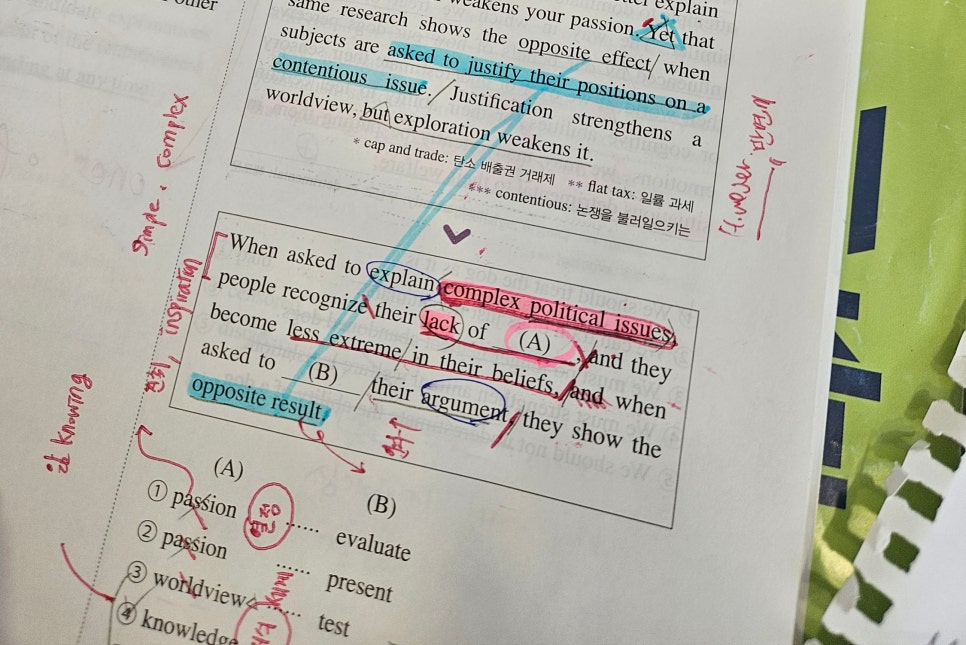 other
explain
weakens your passion. Yet that
same research shows the opposite effect/ when
subjects are asked to justify their positions on a
contentious issue. / Justification strengthens a
worldview, but exploration weakens it.
* cap and trade: 탄소 배출권 거래제 ** flat tax: 일률 과세
*** contentious: 논쟁을 불러일으키는
simple · complex
inspiration
knowing
When asked to explain/complex political issues,
people recognize their lack of (A) , and they
become less extreme/in their beliefs,/and when
asked to (B) /their argument,/they show the
opposite result.
(A) (B)
① passion 열정 ...... evaluate
② passion ...... present
③ worldview ...... test
④ knowledge